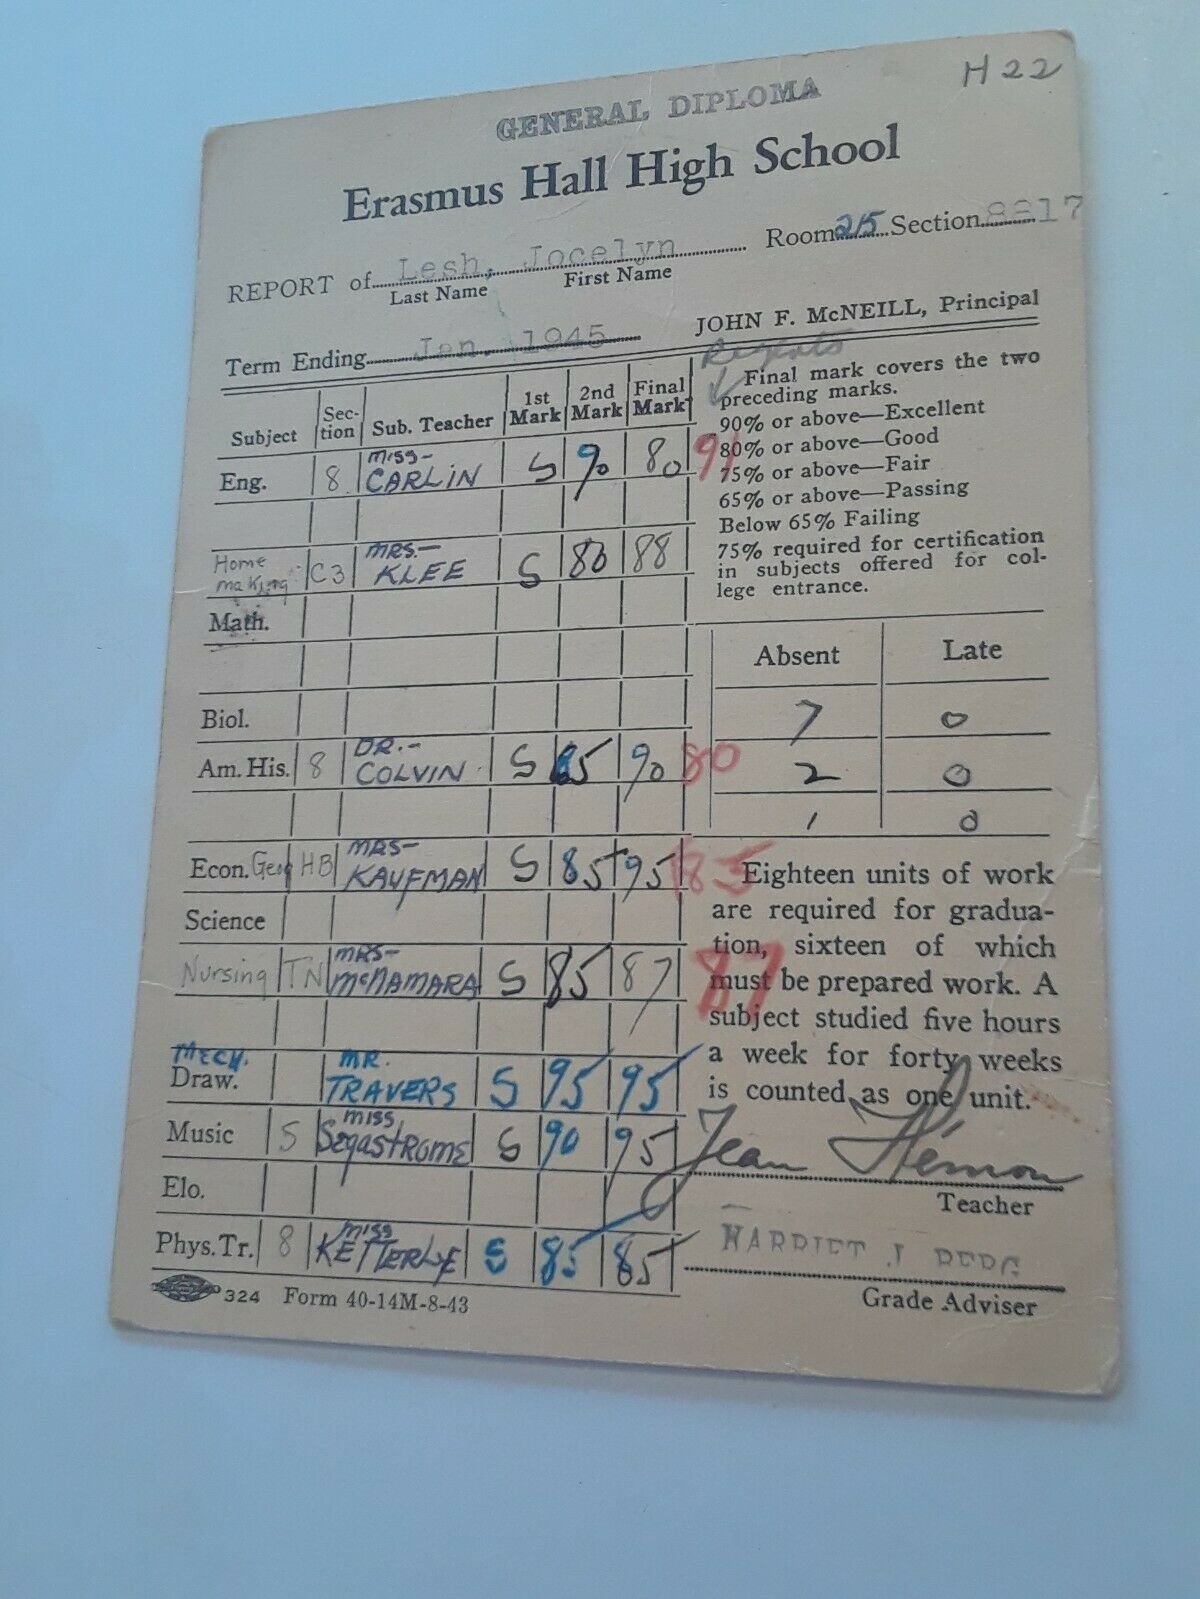 H 22
GENERAL DIPLOMA
Erasmus Hall High School
REPORT of Lesh, Jocelyn Room 215 Section 8817
Last Name First Name
Term Ending Jan. 1945 JOHN F. McNEILL, Principal
Regents
Subject Section Sub. Teacher 1st Mark 2nd Mark Final Mark
Eng. 8 MISS- CARLIN S 90 80 91
Home making C3 MRS.- KLEE S 80 88
Math.
Biol.
Am. His. 8 DR.- COLVIN S 85 90 80
Econ. Geog HB MRS- KAUFMAN S 85 95 85
Science
Nursing TN MRS- McNAMARA S 85 87 87
MECH. Draw. MR. TRAVERS S 95 95
Music S MISS SEgASTROME S 90 95
Elo.
Phys. Tr. 8 MISS KETTERLYE S 85 85
324 Form 40-14M-8-43
Final mark covers the two
preceding marks.
90% or above—Excellent
80% or above—Good
75% or above—Fair
65% or above—Passing
Below 65% Failing
75% required for certification
in subjects offered for col-
lege entrance.
Absent Late
7 0
2 0
1 0
Eighteen units of work
are required for gradua-
tion, sixteen of which
must be prepared work. A
subject studied five hours
a week for forty weeks
is counted as one unit.
Jean Hémon
Teacher
HARRIET J BERG
Grade Adviser